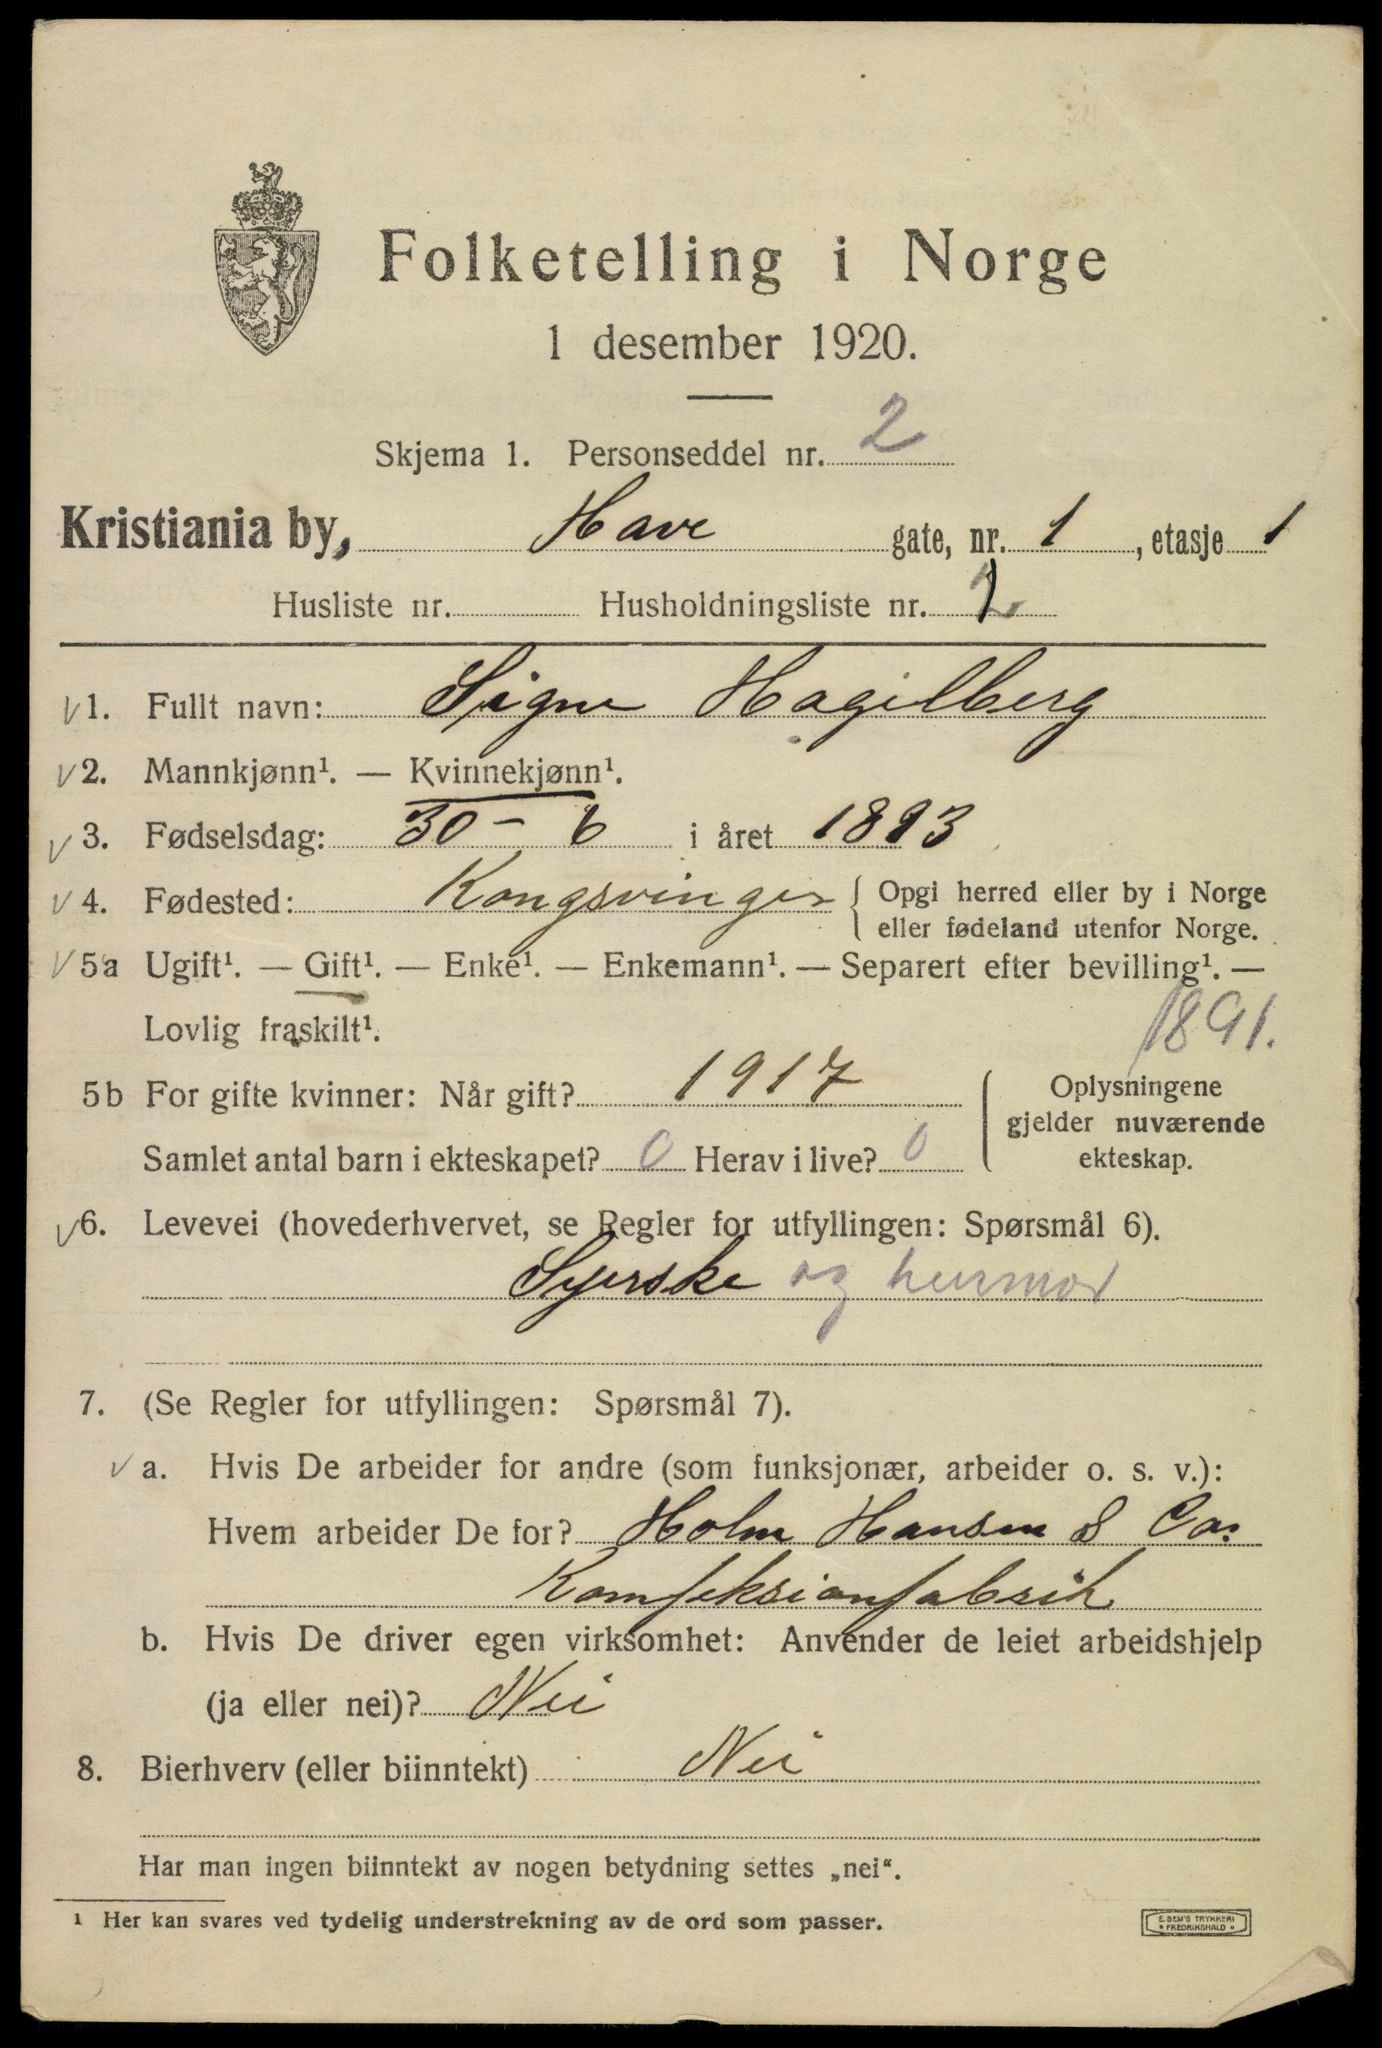 Folketelling i Norge
1 desember 1920.
Skjema 1. Personseddel nr. 2
Kristiania by, Have gate, nr. 1, etasje 1
Husliste nr. Husholdningsliste nr.
√ 1. Fullt navn: Signe Hagilberg
√ 2. Mannkjønn¹. — Kvinnekjønn¹.
√ 3. Fødselsdag: 30 – 6 i året 1893
√ 4. Fødested: Kongsvinger { Opgi herred eller by i Norge
eller fødeland utenfor Norge.
√ 5a Ugift¹. — Gift¹. — Enke¹. — Enkemann¹. — Separert efter bevilling¹. —
Lovlig fraskilt¹.
1891.
5b For gifte kvinner: Når gift? 1917
Samlet antal barn i ekteskapet? 0 Herav i live? 0
Oplysningene
gjelder nuværende
ekteskap.
√ 6. Levevei (hovederhvervet, se Regler for utfyllingen: Spørsmål 6).
Syerske og husmor
7. (Se Regler for utfyllingen: Spørsmål 7).
√ a. Hvis De arbeider for andre (som funksjonær, arbeider o. s. v.):
Hvem arbeider De for? Holm Hansen & Co.
Konfeksionfabrik
b. Hvis De driver egen virksomhet: Anvender de leiet arbeidshjelp
(ja eller nei)? Nei
8. Bierhverv (eller biinntekt) Nei
Har man ingen biinntekt av nogen betydning settes „nei“.
¹ Her kan svares ved tydelig understrekning av de ord som passer.
E. SEM'S TRYKKERI
* FREDRIKSHALD *